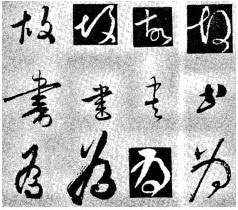 故 故 故 故
書 書 書 書
為 為 為 為